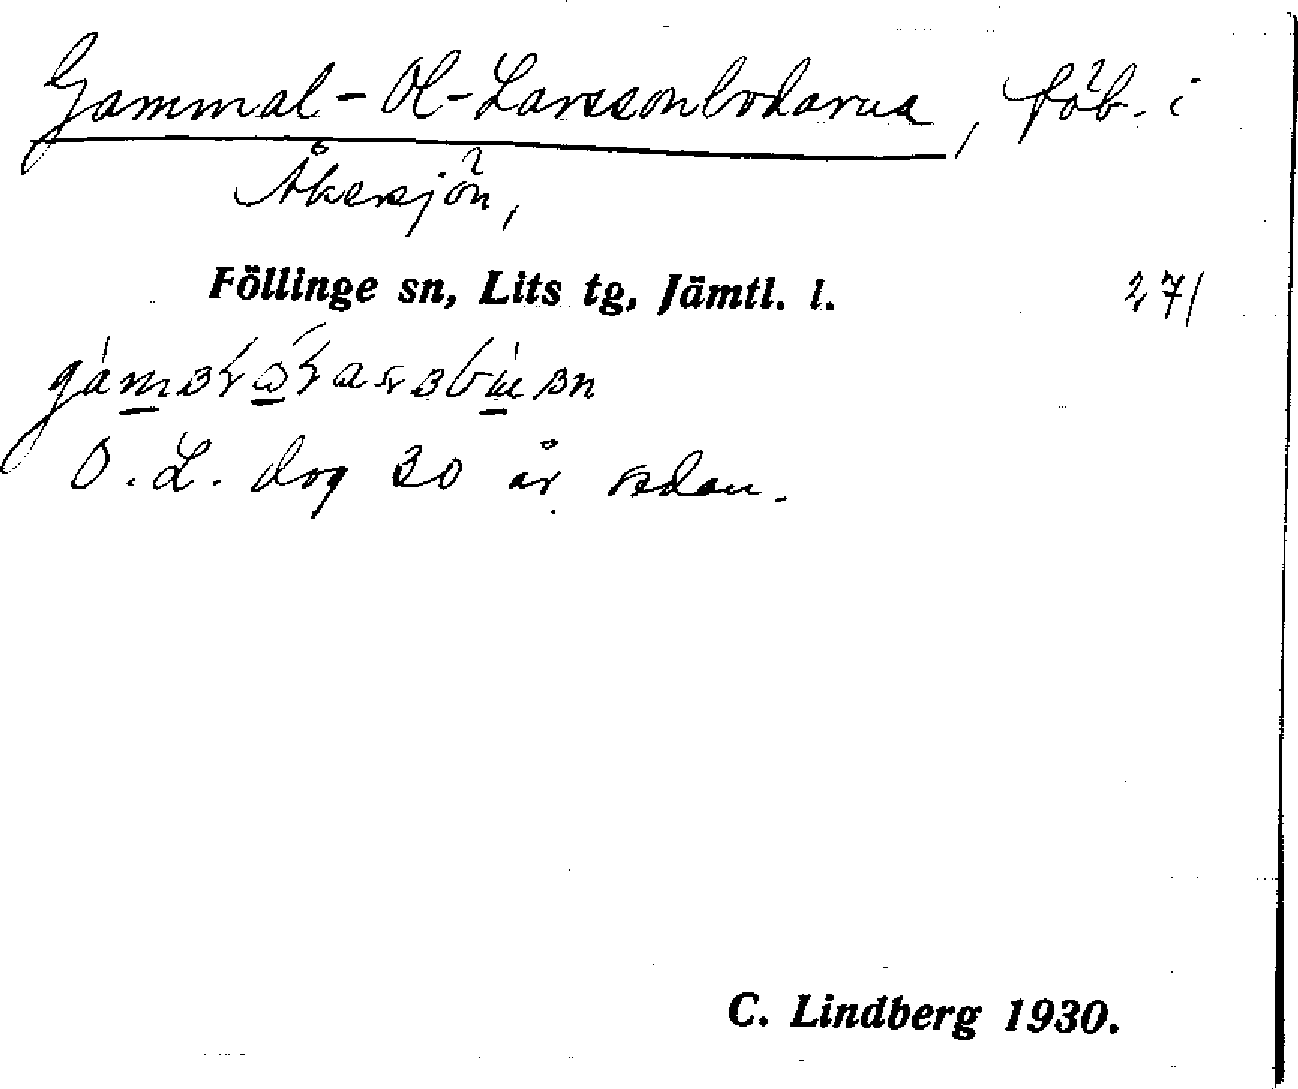 Gammal-Ol-Larssonbodarna, föb. i
Åkersjön,
Föllinge sn, Lits tg, Jämtl. l.
271
O. L. dog 30 år sedan.
C. Lindberg 1930.